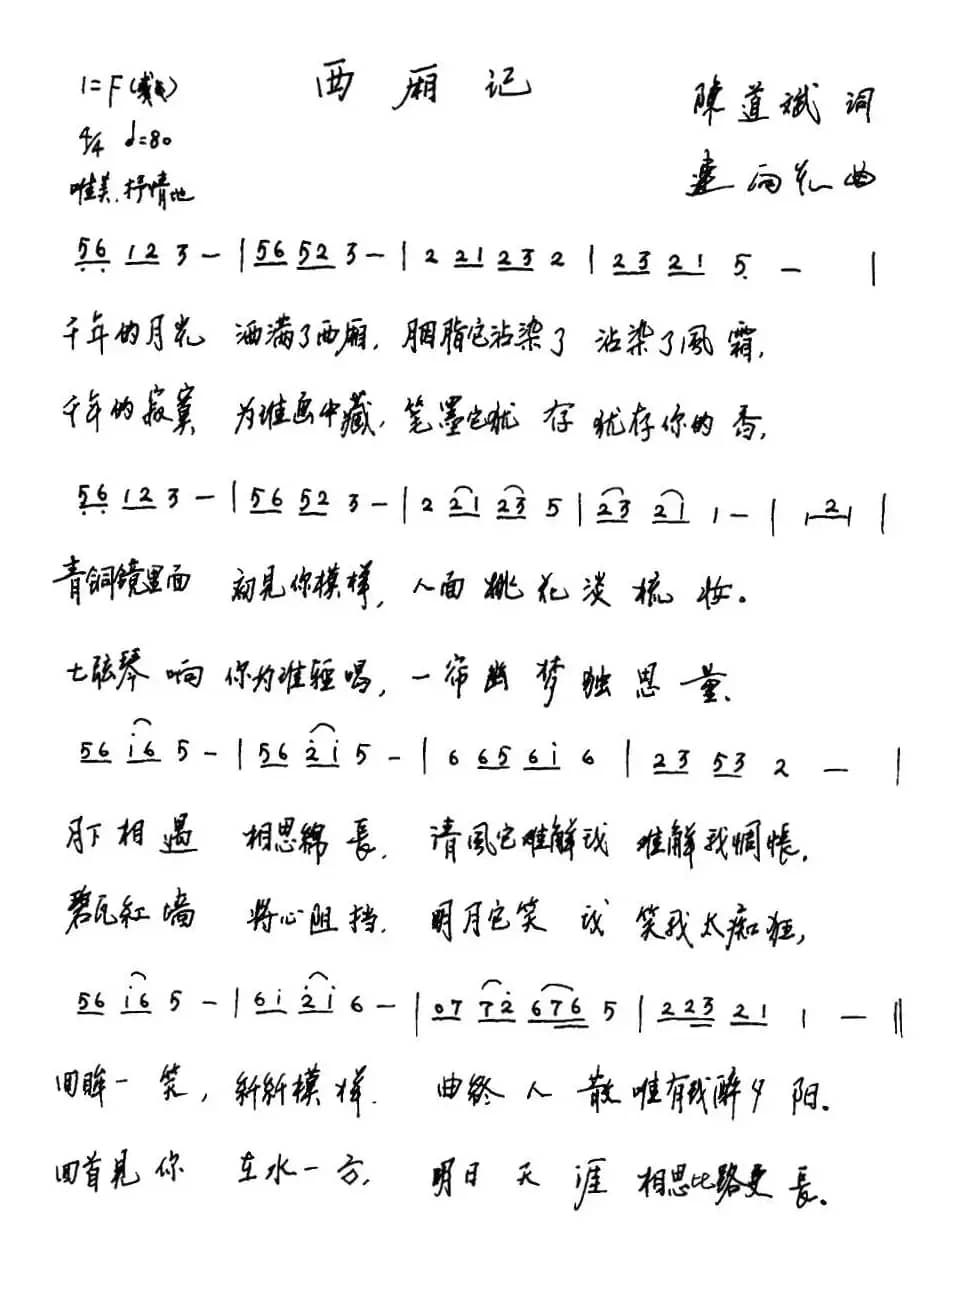 西厢记
1=F(或E)
4/4 ♩=80
唯美.抒情地
陳道斌 词
连向先 曲
56 12 3 - | 56 52 3 - | 2 21 23 2 | 23 21 5 - |
千年的月光 洒满了西厢, 胭脂它沾染了 沾染了風霜,
千年的寂寞 为谁画中藏, 笔墨它犹存 犹存你的香,
56 12 3 - | 56 52 3 - | 2 21 23 5 | 23 21 1 - | 2 |
青銅鏡里面 初見你模樣, 人面桃花淡梳妆。
七弦琴响 你为谁轻唱, 一帘幽梦独思量.
56 i6 5 - | 56 2̇i 5 - | 6 65 6i 6 | 23 53 2 - |
月下相遇 相思綿長, 清風它难解我 难解我惆悵,
碧瓦紅墙 将心阻挡. 明月它笑我 笑我太痴狂,
56 i6 5 - | 6i 2̇i 6 - | 07 72̇ 676 5 | 223 21 1 - ‖
回眸一笑, 新新模样. 曲終人散 唯有我醉夕阳.
回首見你 在水一方, 明日天涯 相思比路更長.